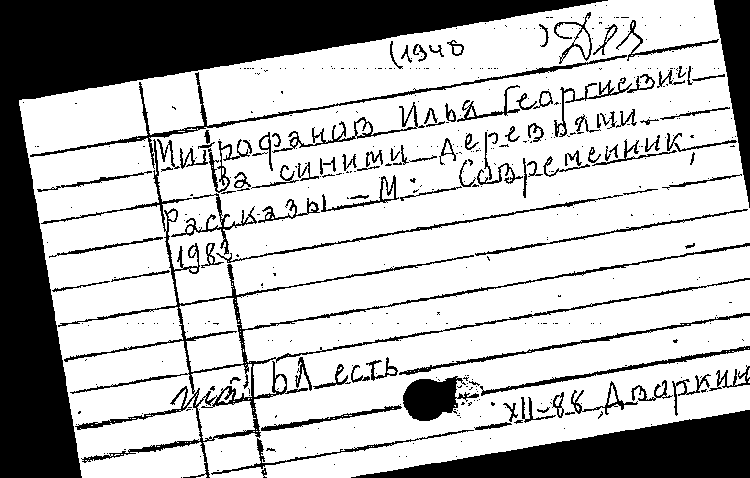 (1948 ) Дея
Митрофанов Илья Георгиевич
За синими деревьями.
Рассказы – М: Современник,
1983.
ист ГБЛ есть
XII-88 Дваркин